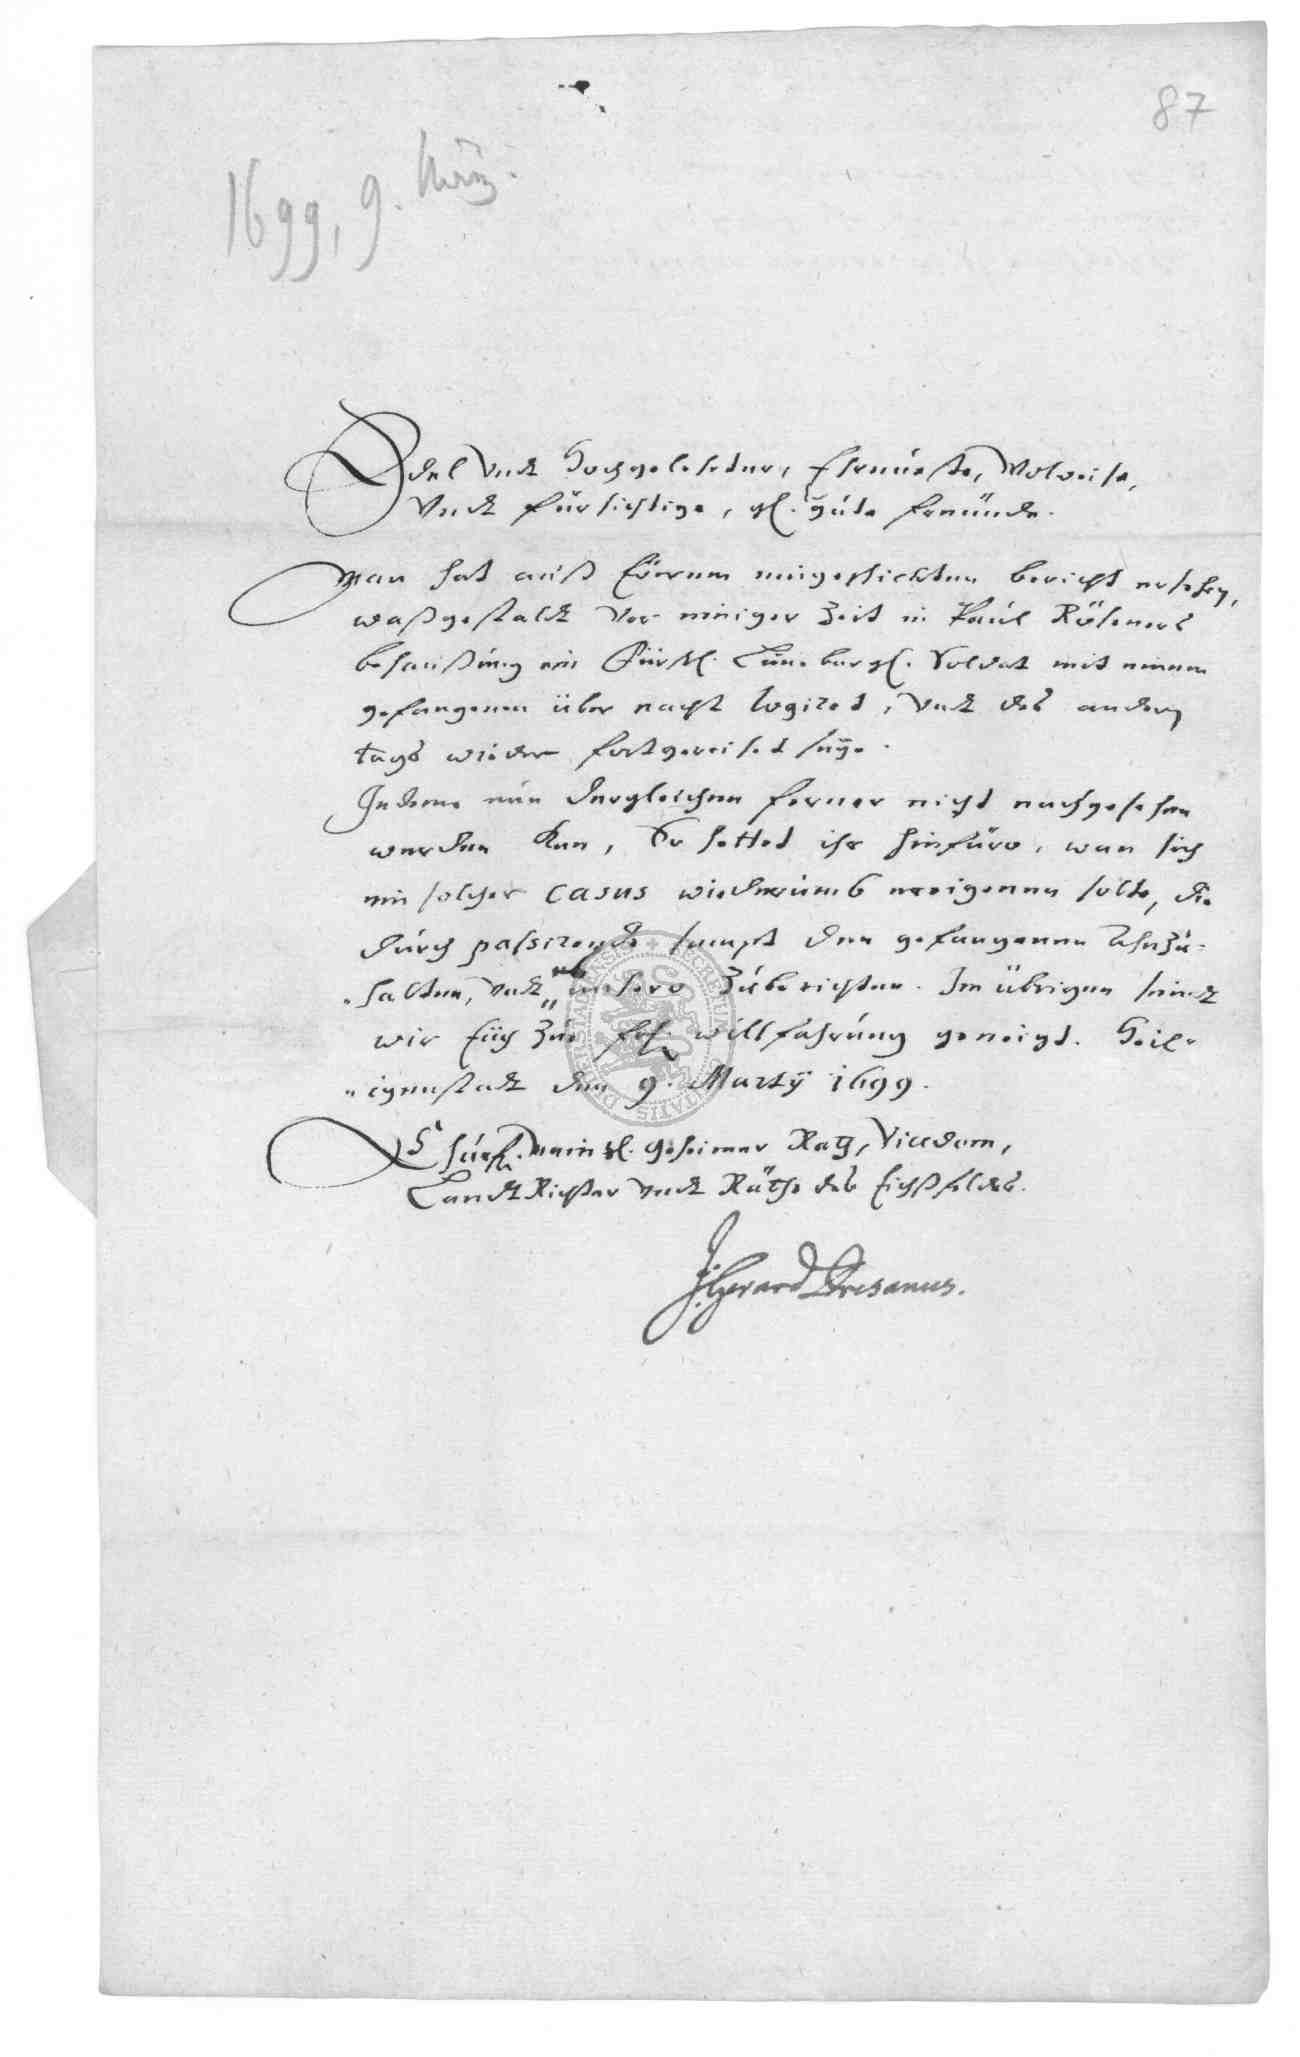 87
1699, 9. März.
Edel Undt Hochgelehrter, Ehrnúeste, Wolweise,
Undt fürsichtige, gl. gúte freúnde.
Man hat aúß Eẅrem eingeschickten bericht ersehen,
waßgestaldt vor einiger Zeit in Paúl Röseners
behaúßúng ein Fürstl. Lüneburgl. Soldat mit einem
gefangenen über nacht logiret, Undt des andern
tags wieder fortgereiset seÿe.
Indeme nún dergleichen ferner nicht nachgesehen
werden kan, So hettet ihr hinfüro, wan sich
ein solcher casus wiederúmb ereigenen solte, die
dúrch passirende sampt den gefangenen ahnzú-
halten, Undt es anhero Zúberichten. Im übrigen seindt
wir Eúch Zúr willfahrúng geneigt. Heil-
igenstadt den 9. Martÿ 1699.
Chúrfl. Maintzl. geheimer Rath, Vicedom,
LandtRichter Undt Räthe des Eichßfeldes.
J. Gerard Dresanus.